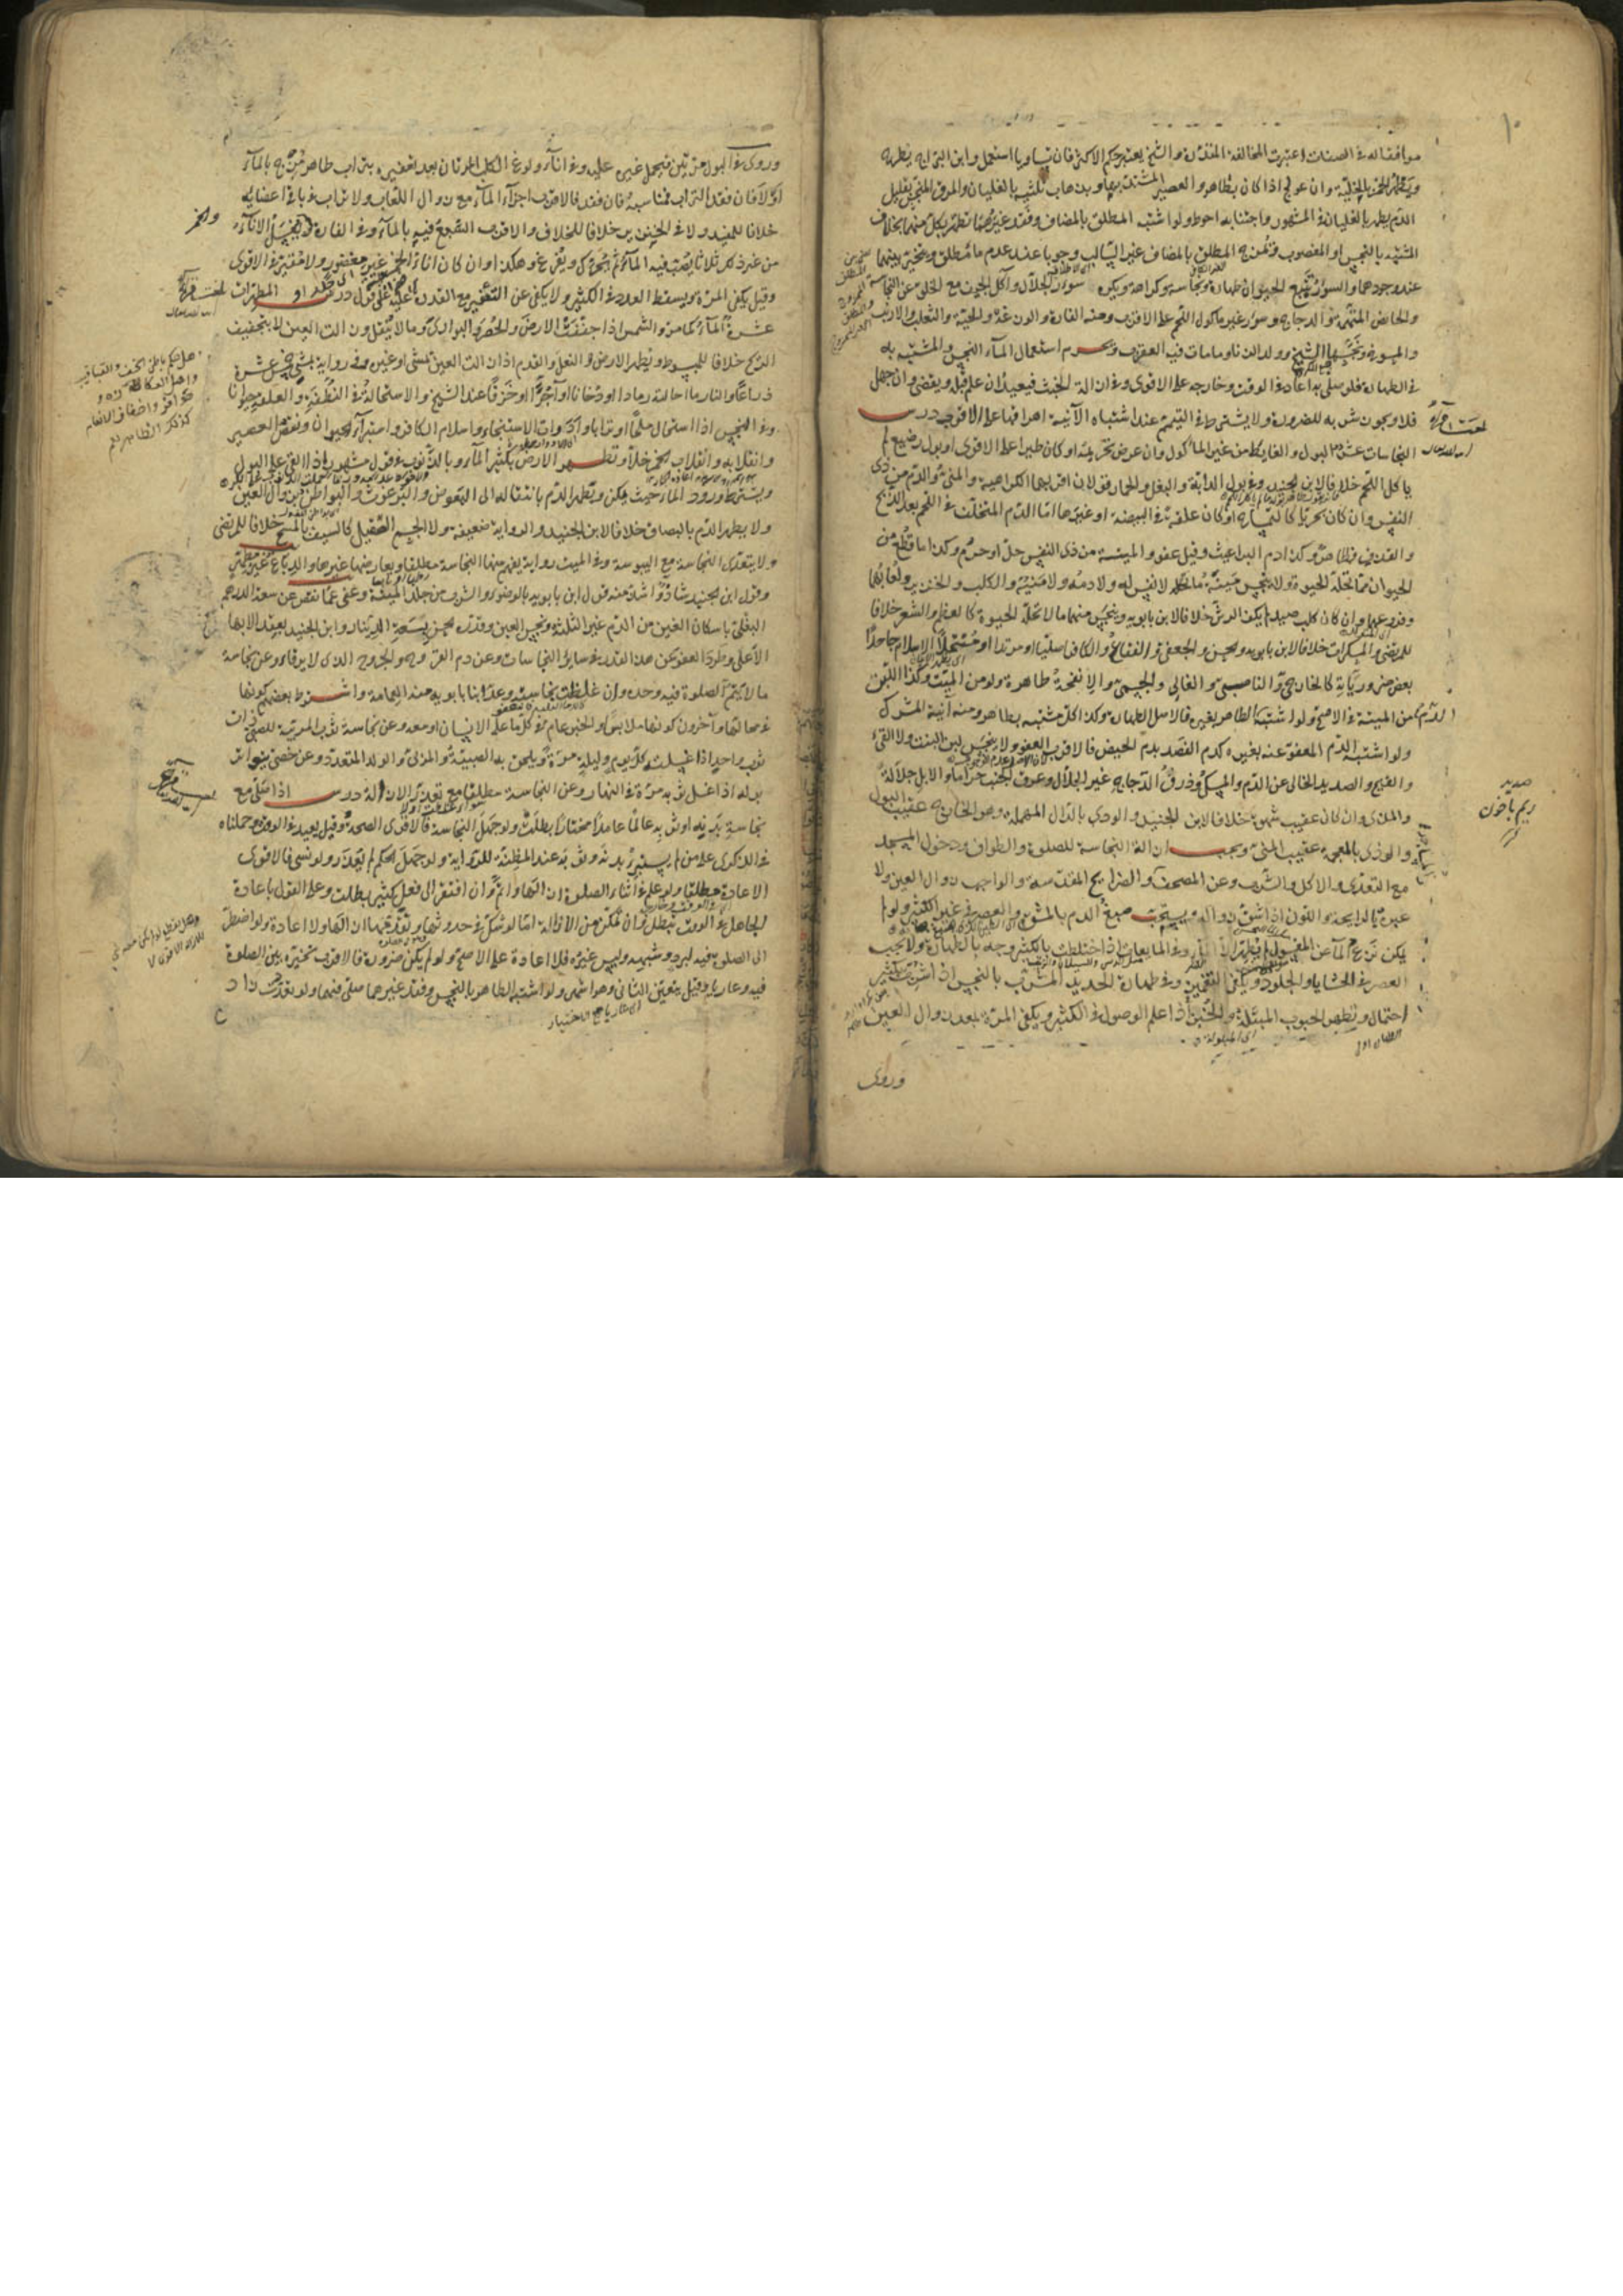 موافقا له في الصفات اعتبرت المخالفة المقدرة والشيخ يعتبر حكم الاكثر فان تساويا استعمل وابن البراج يطرحه
ويطهر الخمر بالخلية وان عولج اذا كان بطاهر والعصير المشتد بها وبذهاب ثلثيه بالغليان والمرق المتنجس بقليل
الدم يطهر بالغليان في المشهور واجتنابه احوط ولو اشتبه المطلق بالمضاف وفقد غيرهما تطهر بكل منهما بخلاف
المشتبه بالنجس او المغصوب ويمزج المطلق بالمضاف غير السالب وجوبا عند عدم ماء مطلق ويتخير بينهما
عند وجودهما والسؤر يتبع الحيوان طهارة ونجاسة وكراهة ويكره سؤر الجلال وآكل الجيف مع الخلو عن النجاسة
والحايض المتهمة والدجاج وسؤر غير ماكول اللحم على الاقرب ومنه الفارة والوزغة والحية والثعلب والارنب
والمسوخ ونجسها الشيخ وولد الزنا وما مات فيه العقرب ويحرم استعمال الماء النجس والمشتبه به
في الطهارة فلو صلى به اعاد في الوقت وخارجه على الاقوى وفي ازالة الخبث فيعيد ان علم قبله ويقضي وان جهل
فلا ويجوز شربه للضرورة ولا يشترط في التيمم عند اشتباه الآنية اهراقها على الاقرب درس
النجاسات عشرة البول والغايط من غير الماكول وان عرض تحريمه او كان طيرا على الاقوى او بول رضيع لم
ياكل اللحم خلافا لابن الجنيد وفي بول الدابة والبغل والحمار قولان اقربهما الكراهية والمني والدم من ذي
النفس وان كان بحريا كالتمساح او كان علقة في البيضة او غيرها اما الدم المتخلف في اللحم بعد الذبح
والقذف فطاهر وكذا دم البراغيث وقيل عفو والميتة من ذي النفس حل او حرم وكذا ما قطع من
الحيوان مما تحله الحيوة ولا ينجس ميتة ما لا نفس له ولا دمه ولا منيه والكلب والخنزير ولعابهما
وفروعهما وان كان كلب صيد لم يكن الرش خلافا لابن بابويه وينجس منهما ما لا تحله الحيوة كالعظم والشعر خلافا
للمرتضى والمسكرات خلافا لابن بابويه والحسن والجعفي والفقاع والكافر اصليا او مرتدا او منتحلا الاسلام جاحدا
بعض ضرورياته كالخارجي والناصبي والغالي والمجسمي والانفحة طاهرة ولو من الميتة وكذا اللبن
من الميتة في الاصح ولو اشتبه الطاهر بغيره فالاصل الطهارة وكذا كل مشتبه بطاهر ومنه آنية المشرك
ولو اشتبه الدم المعفو عنه بغيره كدم الفصد بدم الحيض فالاقرب العفو ولا ينجس لبن البنت ولا القيء
والقيح والصديد الخالي عن الدم والمسك وذرق الدجاج غير الجلال وعرق الجنب حراما والابل جلالة
والمذي وان كان عقيب شهوة خلافا لابن الجنيد والودي بالدال المهملة وهو الخارج عقيب البول
والوذي بالمعجمة عقيب المني ويجب ازالة النجاسة للصلوة والطواف ودخول المسجد
مع التعدي والاكل والشرب وعن المصحف والضرايح المقدسة والواجب زوال العين ولا
عبرة بالرايحة واللون اذا شق زواله ويستحب صبغ الدم بالمشق والعصر في غير الكثير ولو لم
يكن نزع الماء عن المغسول لم يطهر وفي المايعات اذا اختلطت بالكثير وجه بالطهارة ولا يجب
العصر في الحشايا والجلود ويكفي التغميز وفي طهارة الحديد المشرب بالنجس اذا شرب بكثير
احتمال وتطهر الحبوب المبتلة والخبز اذا علم الوصول في الكثير ويكفي المرة بعد زوال العين
وروى
صديد
ريم باخون
وروى في البول مرتين فيحمل غيره عليه وفي اناء ولوغ الكلب المرتان بعد تعفيره بتراب طاهر يمزج بالماء
اولا فان فقد التراب فمناسبه فان فقد فالاقرب اجزاء الماء مع زوال اللعاب ولا تراب في باقي اعضائه
خلافا للمفيد ولا في الخنزير خلافا للخلاف والاقرب السبع فيه بالماء وفي الفارة والخمر ويغسل الاناء
من غير ذلك ثلاثا يصب فيه الماء ثم يحرك ويفرغ وهكذا وان كان اناء الخمر غير مغضور ولا مقير في الاقوى
وقيل يكفي المرة ويسقط العدد في الكثير ولا يكفي عن التعفير مع القدرة عليه على قول درس المطهرات
عشرة الماء كما مر والشمس اذا جففت الارض والحصر والبواري وما لا ينقل وزالت العين لا بتجفيف
الريح خلافا للمبسوط وتطهر الارض النعل والقدم اذا زالت العين بمشي او غيره وفي رواية يمشي خمس عشرة
ذراعا والنار ما احالته رمادا او دخانا او آجرا او خزفا عند الشيخ والاستحالة في النطفة والعلقة حيوانا
وفي النجس اذا استحال ملحا او ترابا وادوات الاستنجاء واسلام الكافر واستبراء الحيوان ونقص العصير
وانقلابه وانقلاب الخمر خلا وتطهر الارض بكثير الماء وبالذنوب في قول مشهور اذا القي على البول
ويشترط ورود الماء حيث يمكن ويطهر الدم بانتقاله الى البعوض والبرغوث والبواطن بزوال العين
ولا يطهر الدم بالبصاق خلافا لابن الجنيد والرواية ضعيفة ولا الجسم الصقيل كالسيف بالمسح خلافا للمرتضى
ولا يتعدى النجاسة مع اليبوسة وفي الميت رواية يفهم منها النجاسة مطلقا ويعارضها غيرها والدباغ غير مطهر
وقول ابن الجنيد شاذ واشذ منه قول ابن بابويه بالوضوء والشرب من جلد الميتة وعفي عما نقص عن سعة الدرهم
البغلي باسكان الغين من الدم غير الثلثة ونجس العين وقدره الحسن بسعة الدينار وابن الجنيد بعقد الابهام
الاعلى وطرد العفو عن هذا القدر في ساير النجاسات وعن دم القروح والجروح الذي لا يرقا وعن نجاسة
ما لا يتم الصلوة فيه وحده وان غلظت نجاسته وعد ابنا بابويه منه العمامة واشترط بعضهم كونها
في محالها وآخرون كونها ملابس والخبر عام في كل ما على الانسان او معه وعن نجاسة ثوب المربية للصبي ذات
ثوب واحد اذا غسلت كل يوم وليلة مرة ويلحق به الصبية والمربي والولد المتعدد وعن خصي يتواتر
بوله اذا غسل ثوبه مرة في النهار وعن النجاسة مطلقا مع تعذر الازالة درس اذا صلى مع
نجاسة بدنه او ثوبه عالما عامدا مختارا بطلت ولو جهل النجاسة فالاقوى الصحة وقيل يعيد في الوقت وحملناه
في الذكرى على من لم يستبرئ بدنه وثوبه عند المظنة للرواية ولو جهل الحكم لم يعذر ولو نسي فالاقوى
الاعادة مطلقا ولو علم في اثناء الصلوة ازالها واتم وان افتقر الى فعل كثير بطلت وعلى القول باعادة
الجاهل في الوقت تبطل وان تمكن من الازالة اما لو شك في حدوثها وتقدمها ازالها ولا اعادة ولو اضطر
الى الصلوة فيه لبرد وشبهه وليس غيره فلا اعادة على الاصح ولو لم يكن ضرورة فالاقرب تخيره بين الصلوة
فيه وعاريا وقيل يتعين الثاني وهو اشهر ولو اشتبه الطاهر بالنجس وفقد غيرهما صلى فيهما ولو تعددت زاد